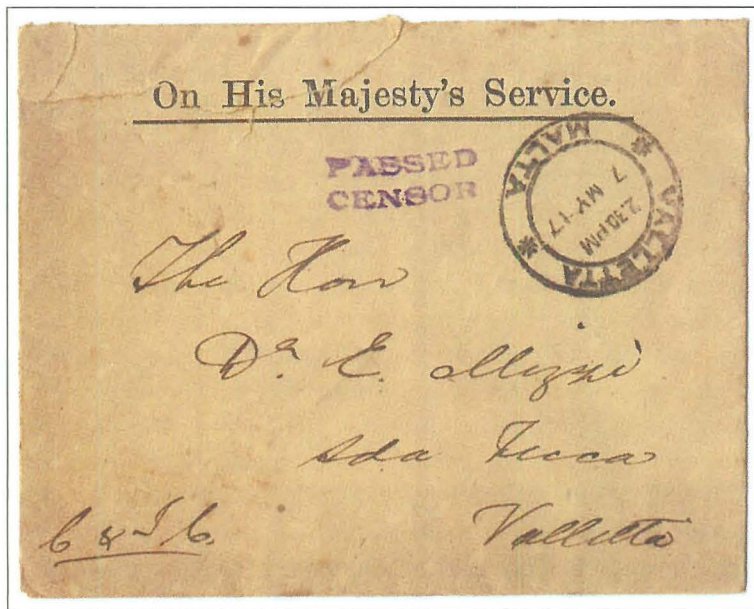 On His Majesty's Service.
PASSED
CENSOR
VALLETTA * MALTA *
2.30 PM
7 MY 17
The Hon
Dr. E. Mizzi
Sda Zecca
Valletta